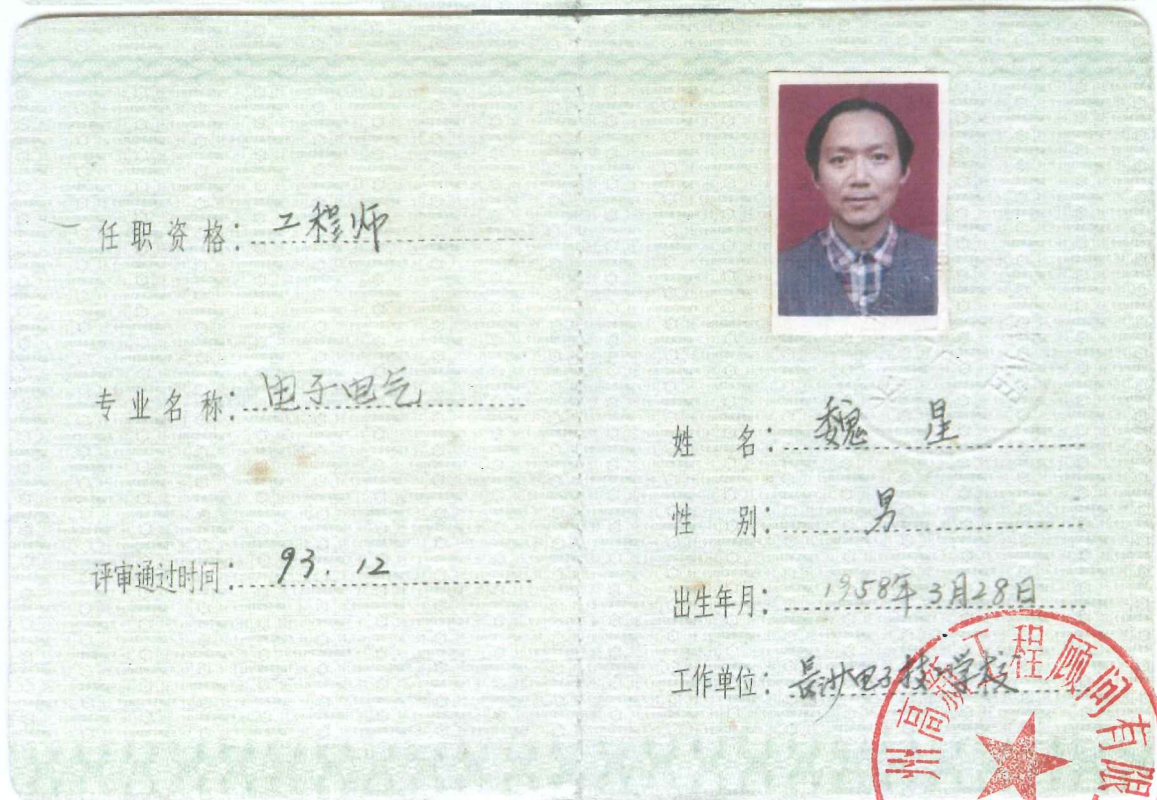 任职资格：工程师
专业名称：电子电气
评审通过时间：93.12
姓名：魏星
性别：男
出生年月：1958年3月28日
工作单位：長沙电子技工学校
州高新工程顾问有限